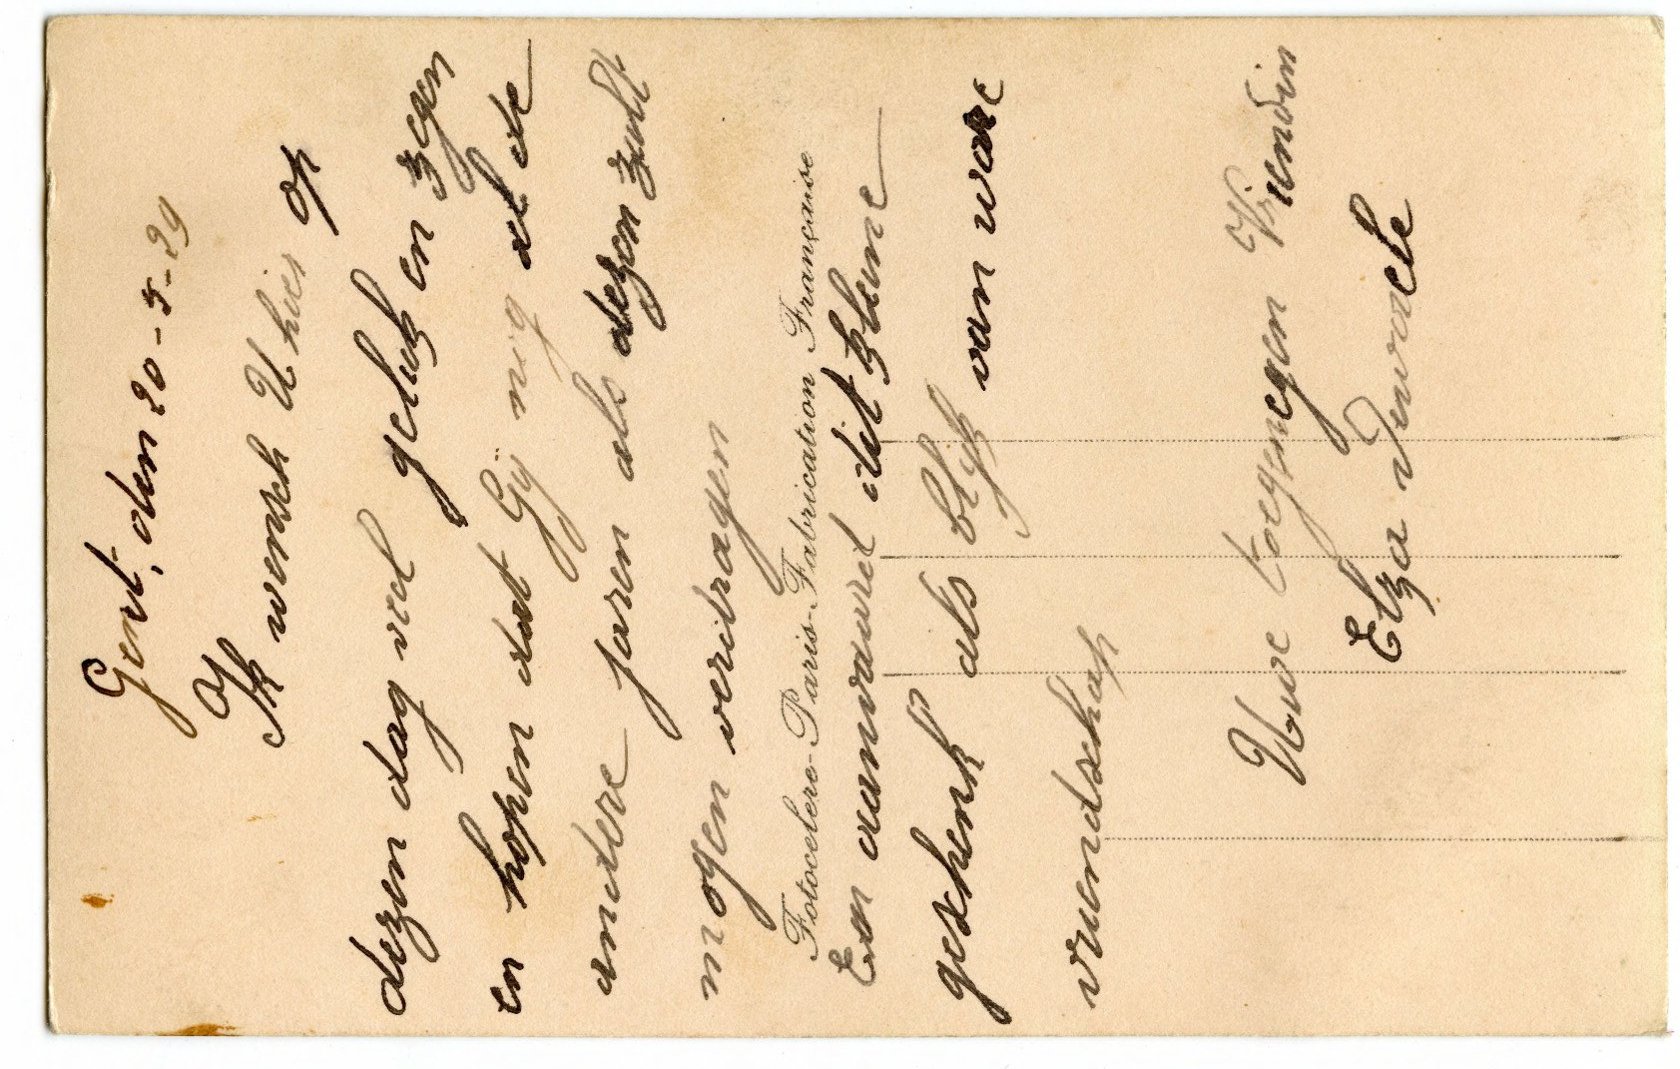 Gent, den 20-5-29
Ik wensch U hier op
dezen dag veel geluk en zegen
en hopen dat Gij nog al de
andere jaren als dezen zult
mogen verdragen
Fotocelere-Paris-Fabrication Française
En aanvaard dit kleine
geschenk als blijk van ware
vriendschap
Uwe toegenegen Vriendin
Elza Dewaele